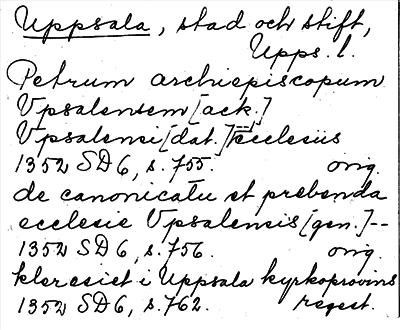 Uppsala, stad och stift,
Upps. l.
Petrum archiepiscopum
Vpsalensem [ack.]
Vpsalensi [dat.] ecclesiis
1352 SD 6, s. 755. orig.
de canonicatu et prebenda
ecclesie Vpsalensis [gen.] --
1352 SD 6, s. 756. orig.
kleresiet i Uppsala kyrkoprovins
1352 SD 6, s. 762. regest.